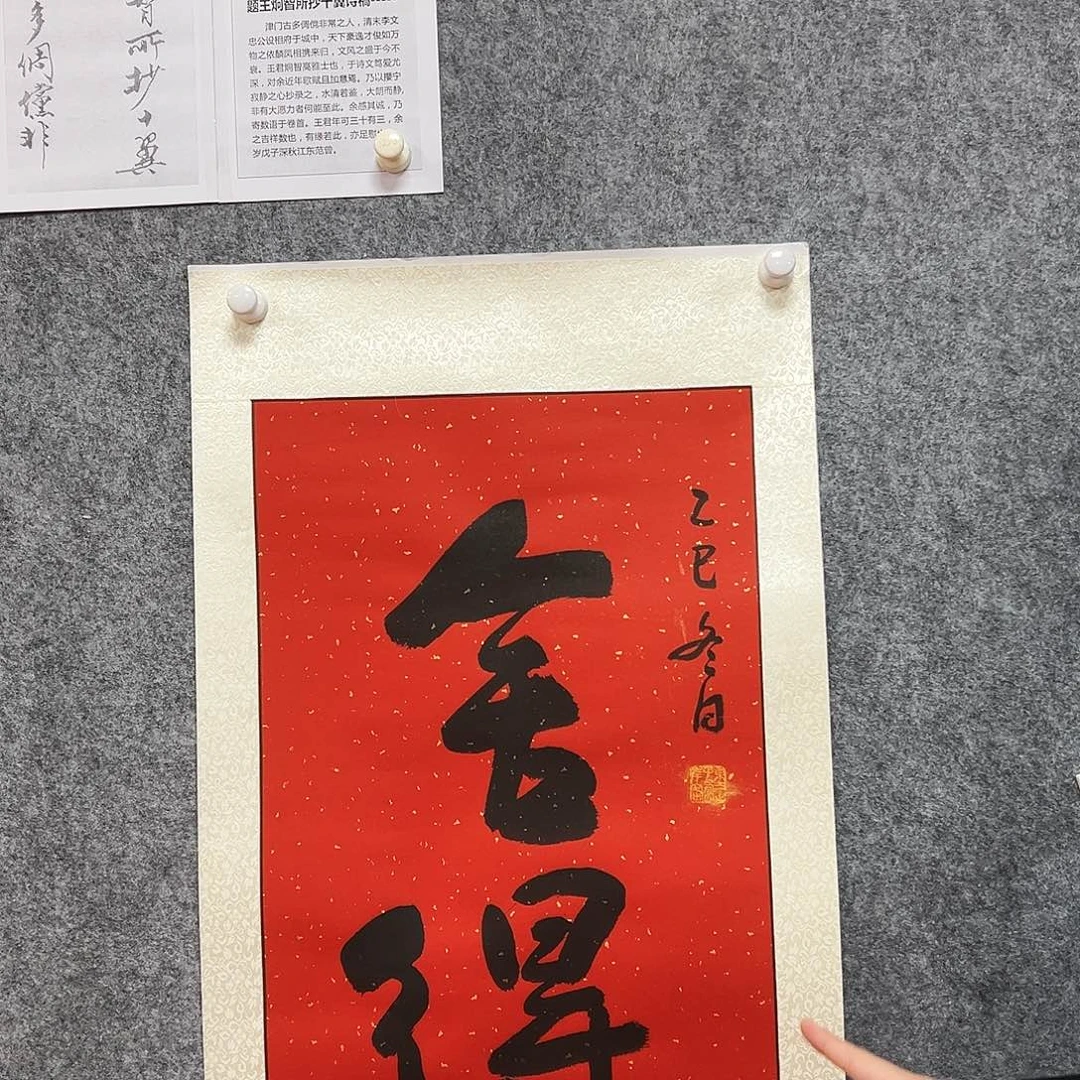 多倜傥非
所抄十翼
题王炯智所抄十翼诗稿
津门古多倜傥非常之人，清末李文
忠公设相府于城中，天下豪逸才俊如万
物之依麟凤相携来归，文风之盛于今不
衰。王君炯智高雅士也，于诗文笃爱尤
深，对余近年歌赋且加意焉。乃以攖宁
寂静之心抄录之，水清若鉴，大朗而静，
非有大愿力者何能至此。余感其诚，乃
寄数语于卷首。王君年可三十有三，余
之吉祥数也，有缘若此，亦足慰
岁戊子深秋江东范曾。
乙巳冬日
舍得